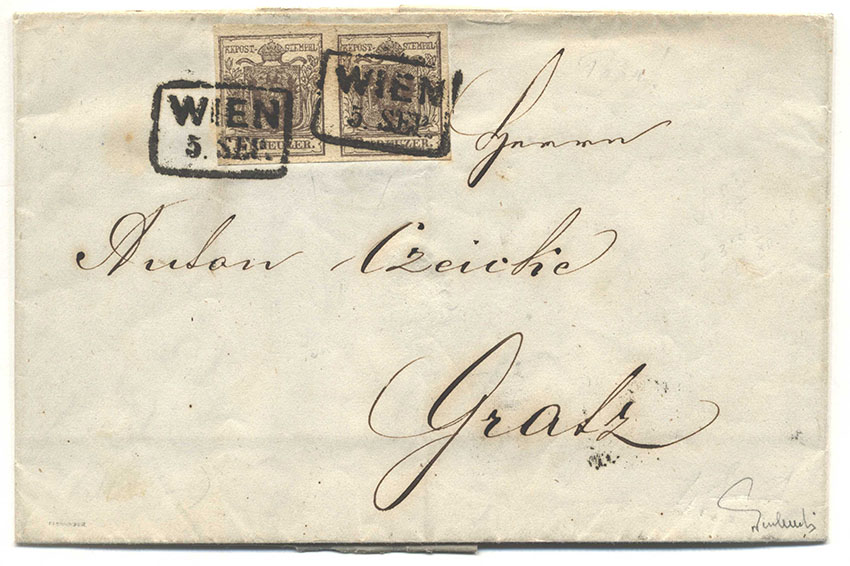 KKPOST-STEMPEL KKPOST-STEMPEL
WIEN WIEN
5. SEP. 5. SEP.
KREUZER. KREUZER.
Herrn
Anton Czeicke
Gratz